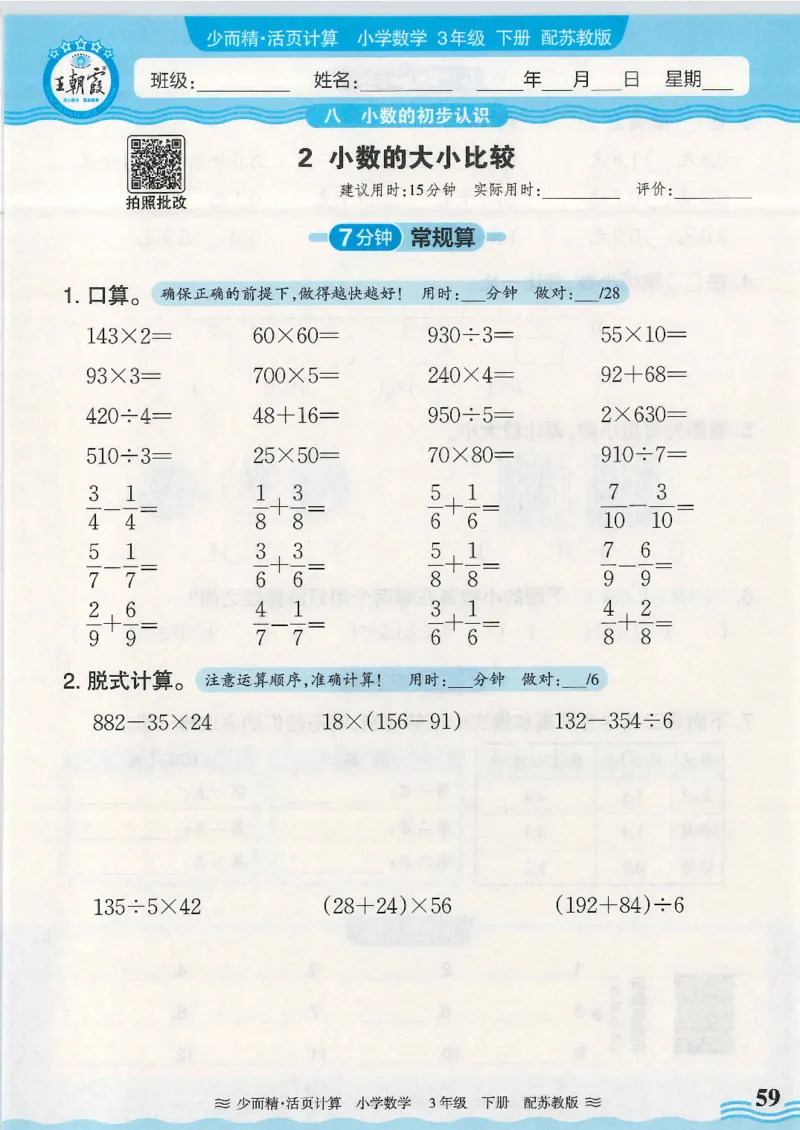 少而精·活页计算 小学数学 3年级 下册 配苏教版
王朝霞
班级:________ 姓名:________ ____年___月___日 星期___
八 小数的初步认识
2 小数的大小比较
拍照批改
建议用时:15分钟 实际用时:________ 评价:________
7分钟 常规算
1. 口算。 确保正确的前提下,做得越快越好! 用时:___分钟 做对:___/28
143×2= 60×60= 930÷3= 55×10=
93×3= 700×5= 240×4= 92+68=
420÷4= 48+16= 950÷5= 2×630=
510÷3= 25×50= 70×80= 910÷7=
3/4-1/4= 1/8+3/8= 5/6+1/6= 7/10-3/10=
5/7-1/7= 3/6+3/6= 5/8+1/8= 7/9-6/9=
2/9+6/9= 4/7-1/7= 3/6+1/6= 4/8+2/8=
2. 脱式计算。 注意运算顺序,准确计算! 用时:___分钟 做对:___/6
882-35×24 18×(156-91) 132-354÷6
135÷5×42 (28+24)×56 (192+84)÷6
少而精·活页计算 小学数学 3年级 下册 配苏教版
59